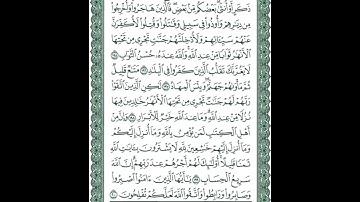 ذَكَرٍ أَوْ أُنثَىٰ بَعْضُكُم مِّنۢ بَعْضٍ فَٱلَّذِينَ هَاجَرُوا۟ وَأُخْرِجُوا۟
مِن دِيَٰرِهِمْ وَأُوذُوا۟ فِى سَبِيلِى وَقَٰتَلُوا۟ وَقُتِلُوا۟ لَأُكَفِّرَنَّ
عَنْهُمْ سَيِّـَٔاتِهِمْ وَلَأُدْخِلَنَّهُمْ جَنَّٰتٍ تَجْرِى مِن تَحْتِهَا
ٱلْأَنْهَٰرُ ثَوَابًا مِّنْ عِندِ ٱللَّهِ وَٱللَّهُ عِندَهُۥ حُسْنُ ٱلثَّوَابِ ١٩٥
لَا يَغُرَّنَّكَ تَقَلُّبُ ٱلَّذِينَ كَفَرُوا۟ فِى ٱلْبِلَٰدِ ١٩٦ مَتَٰعٌ قَلِيلٌ
ثُمَّ مَأْوَىٰهُمْ جَهَنَّمُ وَبِئْسَ ٱلْمِهَادُ ١٩٧ لَٰكِنِ ٱلَّذِينَ ٱتَّقَوْا۟
رَبَّهُمْ لَهُمْ جَنَّٰتٌ تَجْرِى مِن تَحْتِهَا ٱلْأَنْهَٰرُ خَٰلِدِينَ فِيهَا
نُزُلًا مِّنْ عِندِ ٱللَّهِ وَمَا عِندَ ٱللَّهِ خَيْرٌ لِّلْأَبْرَارِ ١٩٨ وَإِنَّ مِنْ
أَهْلِ ٱلْكِتَٰبِ لَمَن يُؤْمِنُ بِٱللَّهِ وَمَآ أُنزِلَ إِلَيْكُمْ
وَمَآ أُنزِلَ إِلَيْهِمْ خَٰشِعِينَ لِلَّهِ لَا يَشْتَرُونَ بِـَٔايَٰتِ ٱللَّهِ
ثَمَنًا قَلِيلًا أُو۟لَٰٓئِكَ لَهُمْ أَجْرُهُمْ عِندَ رَبِّهِمْ إِنَّ ٱللَّهَ
سَرِيعُ ٱلْحِسَابِ ١٩٩ يَٰٓأَيُّهَا ٱلَّذِينَ ءَامَنُوا۟ ٱصْبِرُوا۟
وَصَابِرُوا۟ وَرَابِطُوا۟ وَٱتَّقُوا۟ ٱللَّهَ لَعَلَّكُمْ تُفْلِحُونَ ٢٠٠